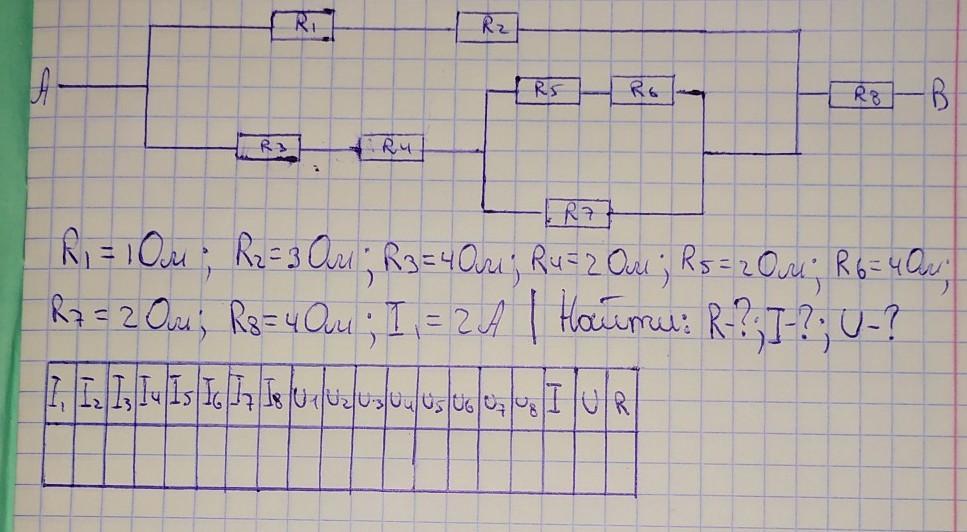 R1 R2
A R5 R6 R8 B
R3 R4
R7
R1=1Ом; R2=3Ом; R3=4Ом; R4=2Ом; R5=2Ом; R6=4Ом;
R7=2Ом; R8=4Ом; I1=2А | Найти: R-?; I-?; U-?
I1 I2 I3 I4 I5 I6 I7 I8 U1 U2 U3 U4 U5 U6 U7 U8 I U R